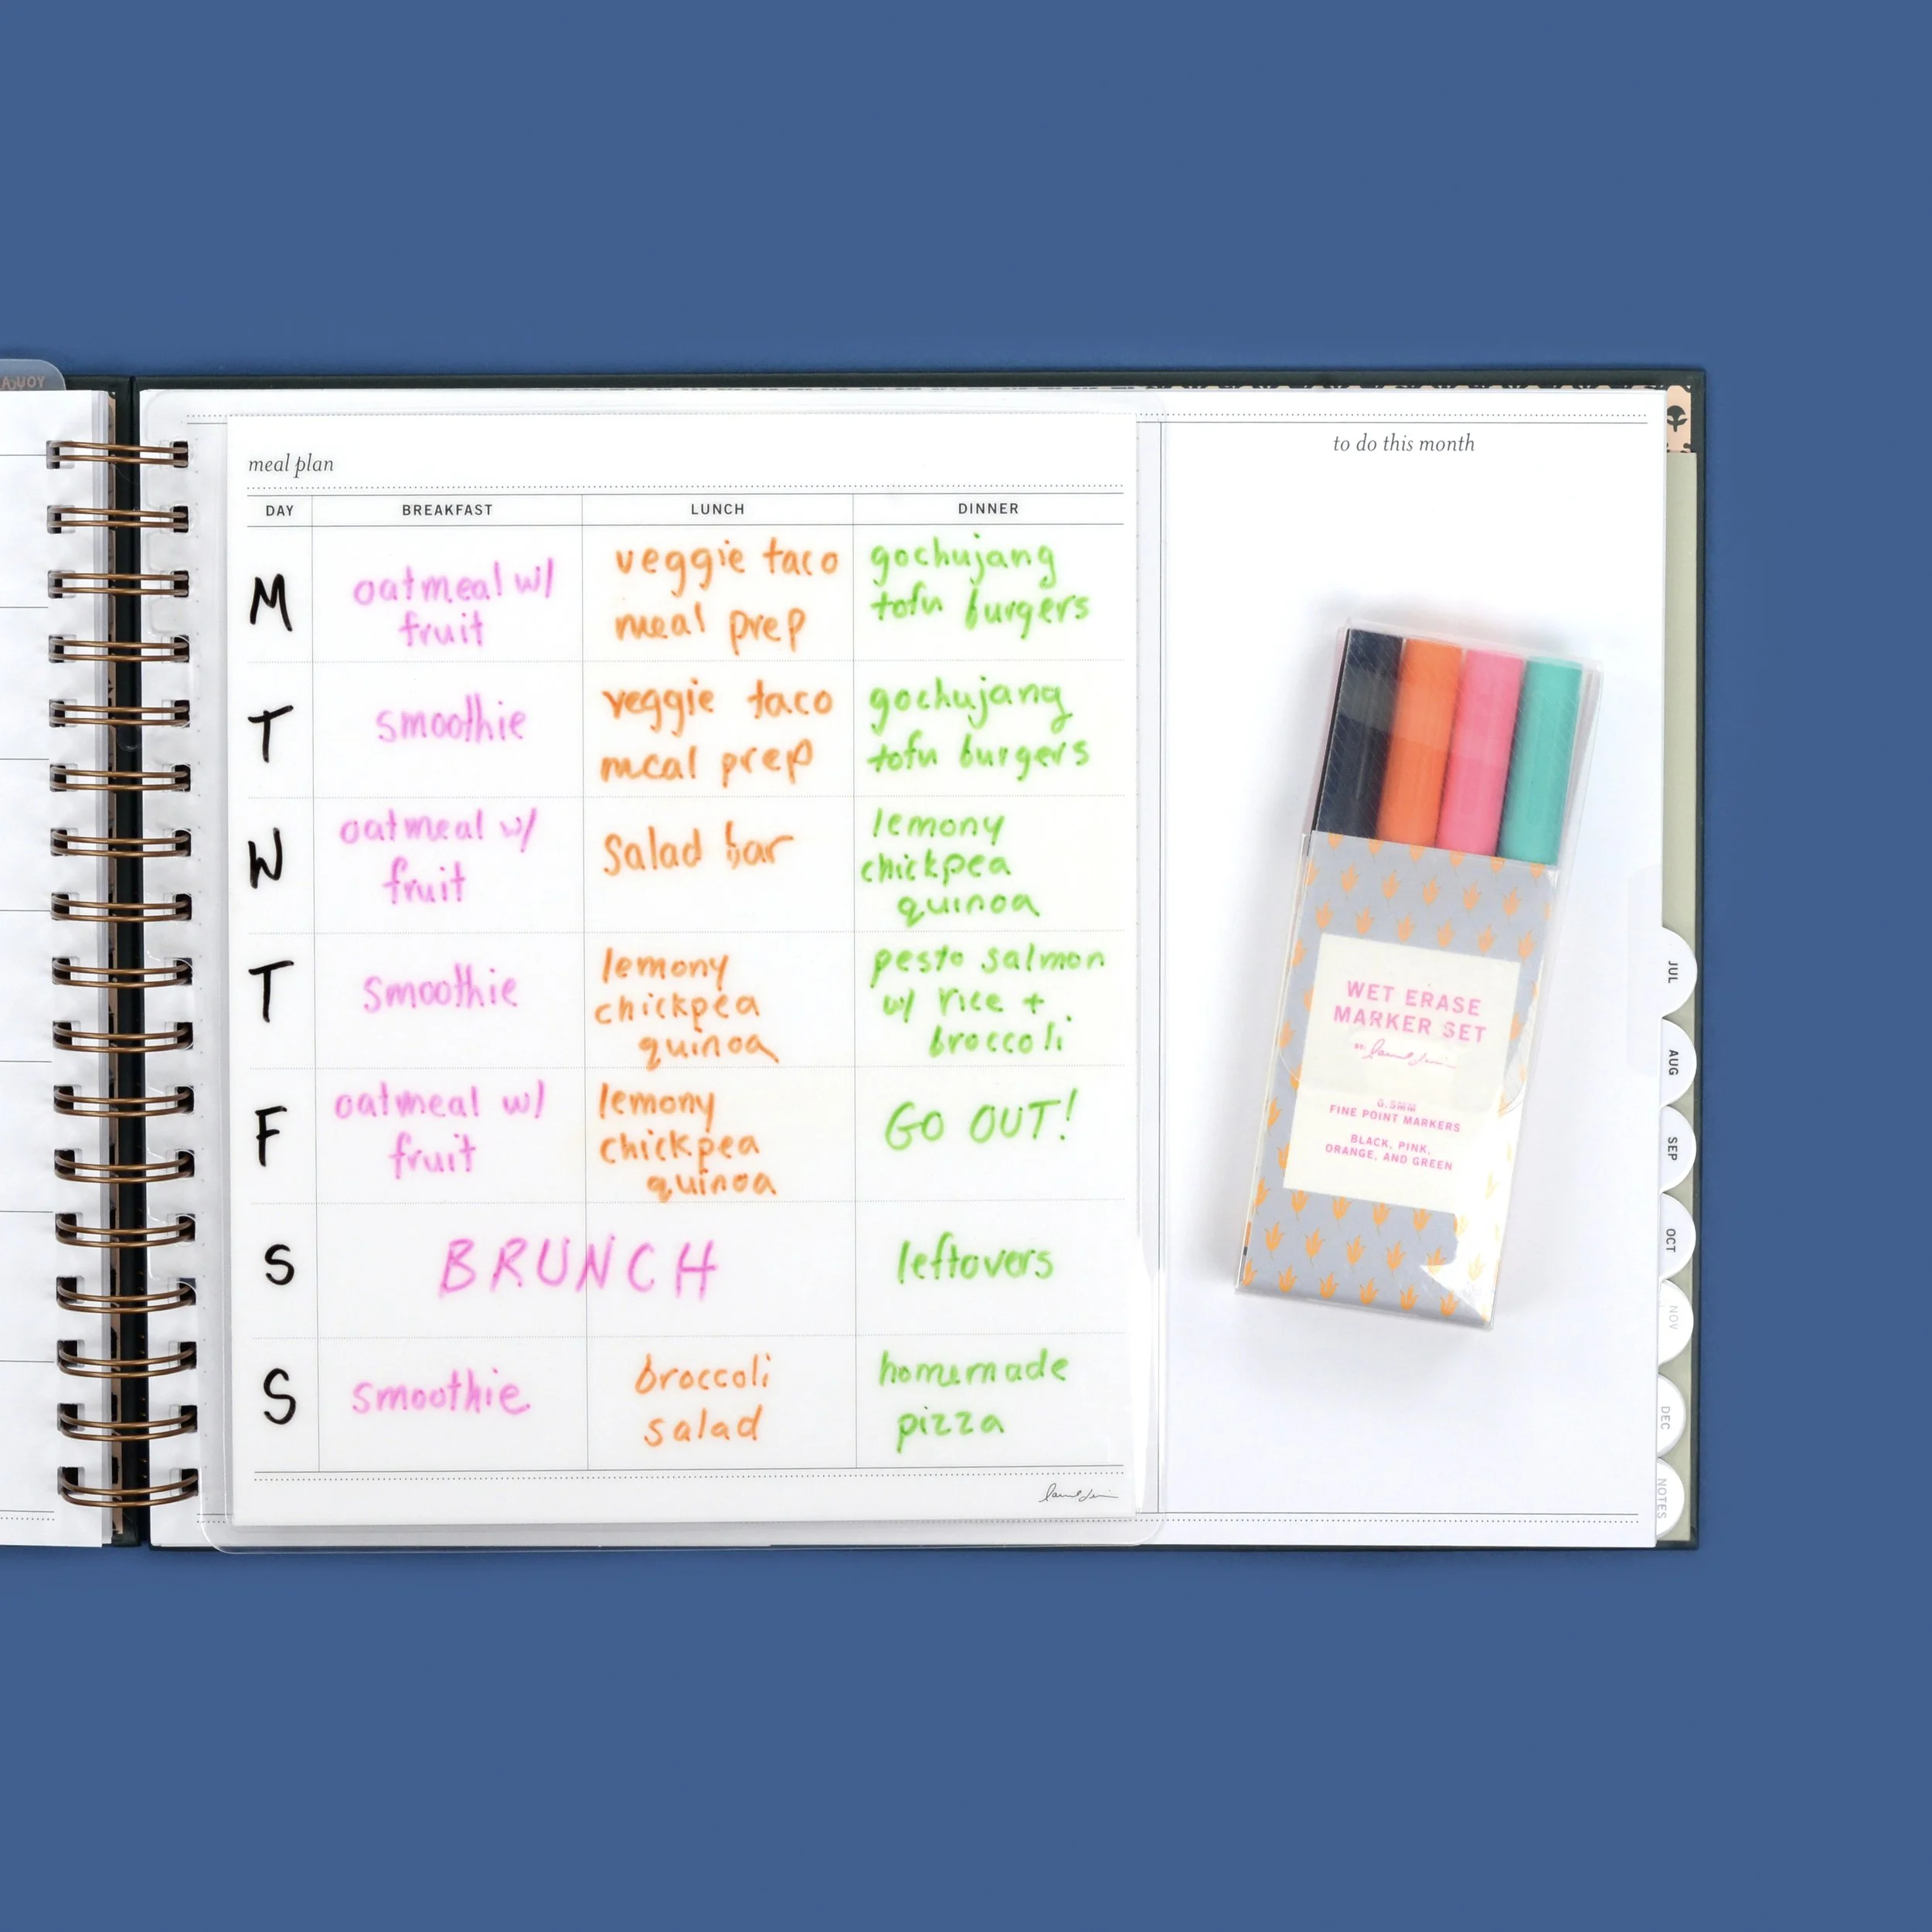 meal plan
to do this month
DAY BREAKFAST LUNCH DINNER
M
oatmeal w/
fruit
veggie taco
meal prep
gochujang
tofu burgers
T
smoothie
veggie taco
meal prep
gochujang
tofu burgers
W
oatmeal w/
fruit
salad bar
lemony
chickpea
quinoa
T
smoothie
lemony
chickpea
quinoa
pesto salmon
w/ rice +
broccoli
F
oatmeal w/
fruit
lemony
chickpea
quinoa
GO OUT!
S
BRUNCH
leftovers
S
smoothie
broccoli
salad
homemade
pizza
WET ERASE
MARKER SET
0.5MM
FINE POINT MARKERS
BLACK, PINK,
ORANGE, AND GREEN
JUL
AUG
SEP
OCT
NOV
DEC
NOTES